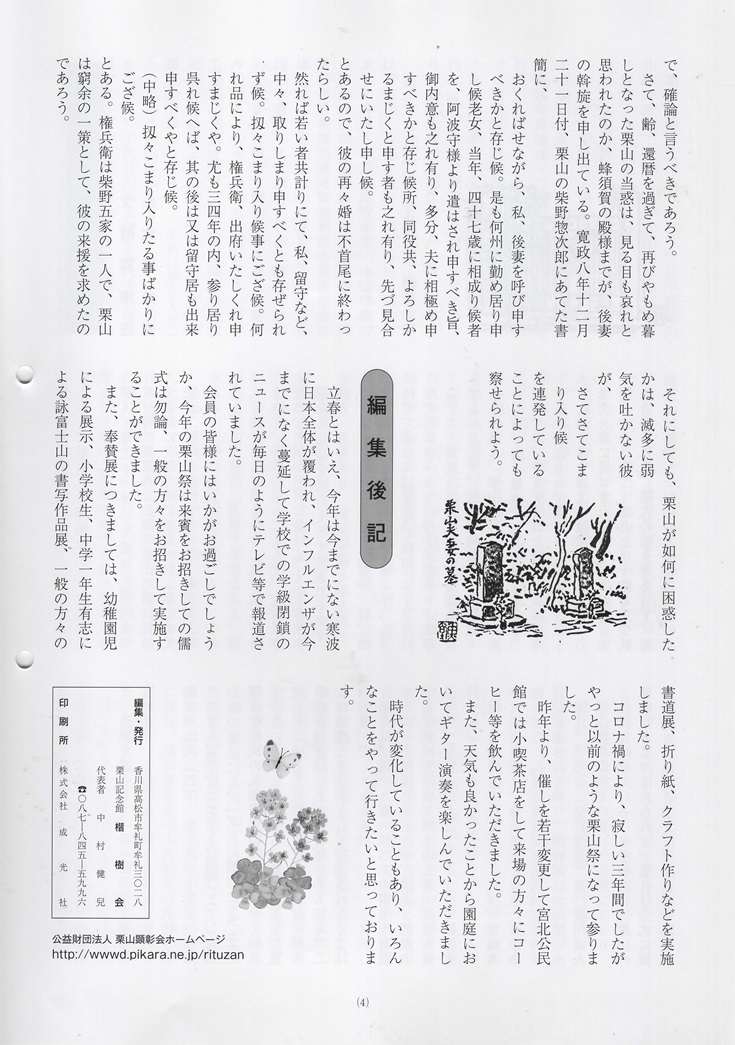 で、確論と言うべきであろう。
さて、齢、還暦を過ぎて、再びやもめ暮
しとなった栗山の当惑は、見る目も哀れと
思われたのか、蜂須賀の殿様までが、後妻
の斡旋を申し出ている。寛政八年十二月
二十一日付、栗山の柴野惣次郎にあてた書
簡に、
おくればせながら、私、後妻を呼び申す
べきかと存じ候。是も何州に勤め居り申
し候老女、当年、四十七歳に相成り候者
を、阿波守様より遣はされ申すべき旨、
御内意も之れ有り、多分、夫に相極め申
すべきかと存じ候所、同役共、よろしか
るまじくと申す者も之れ有り、先づ見合
せにいたし申し候。
とあるので、彼の再々婚は不首尾に終わっ
たらしい。
然れば若い者共計りにて、私、留守など、
中々、取りしまり申すべくとも存ぜられ
ず候。扨々こまり入り候事にござ候。何
れ品により、権兵衛、出府いたしくれ申
すまじくや。尤も三四年の内、参り居り
呉れ候へば、其の後は又は留守居も出来
申すべくやと存じ候。
(中略)扨々こまり入りたる事ばかりに
ござ候。
とある。権兵衛は柴野五家の一人で、栗山
は窮余の一策として、彼の来援を求めたの
であろう。
それにしても、栗山が如何に困惑した
かは、滅多に弱
気を吐かない彼
が、
さてさてこま
り入り候
を連発している
ことによっても
察せられよう。
栗山夫妻の墓
編集後記
立春とはいえ、今年は今までにない寒波
に日本全体が覆われ、インフルエンザが今
までになく蔓延して学校での学級閉鎖の
ニュースが毎日のようにテレビ等で報道さ
れていました。
会員の皆様にはいかがお過ごしでしょう
か、今年の栗山祭は来賓をお招きしての儒
式は勿論、一般の方々をお招きして実施す
ることができました。
また、奉賛展につきましては、幼稚園児
による展示、小学校生、中学一年生有志に
よる詠富士山の書写作品展、一般の方々の
書道展、折り紙、クラフト作りなどを実施
しました。
コロナ禍により、寂しい三年間でしたが
やっと以前のような栗山祭になって参りま
した。
昨年より、催しを若干変更して宮北公民
館では小喫茶店をして来場の方々にコー
ヒー等を飲んでいただきました。
また、天気も良かったことから園庭にお
いてギター演奏を楽しんでいただきまし
た。
時代が変化していることもあり、いろん
なことをやって行きたいと思っておりま
す。
編集・発行
香川県高松市牟礼町牟礼三〇二八
栗山記念館 楷樹会
代表者 中村健兒
☎〇八七―八四五―五九九六
印刷所 株式会社 成光社
公益財団法人 栗山顕彰会ホームページ
http://wwwd.pikara.ne.jp/rituzan
(4)